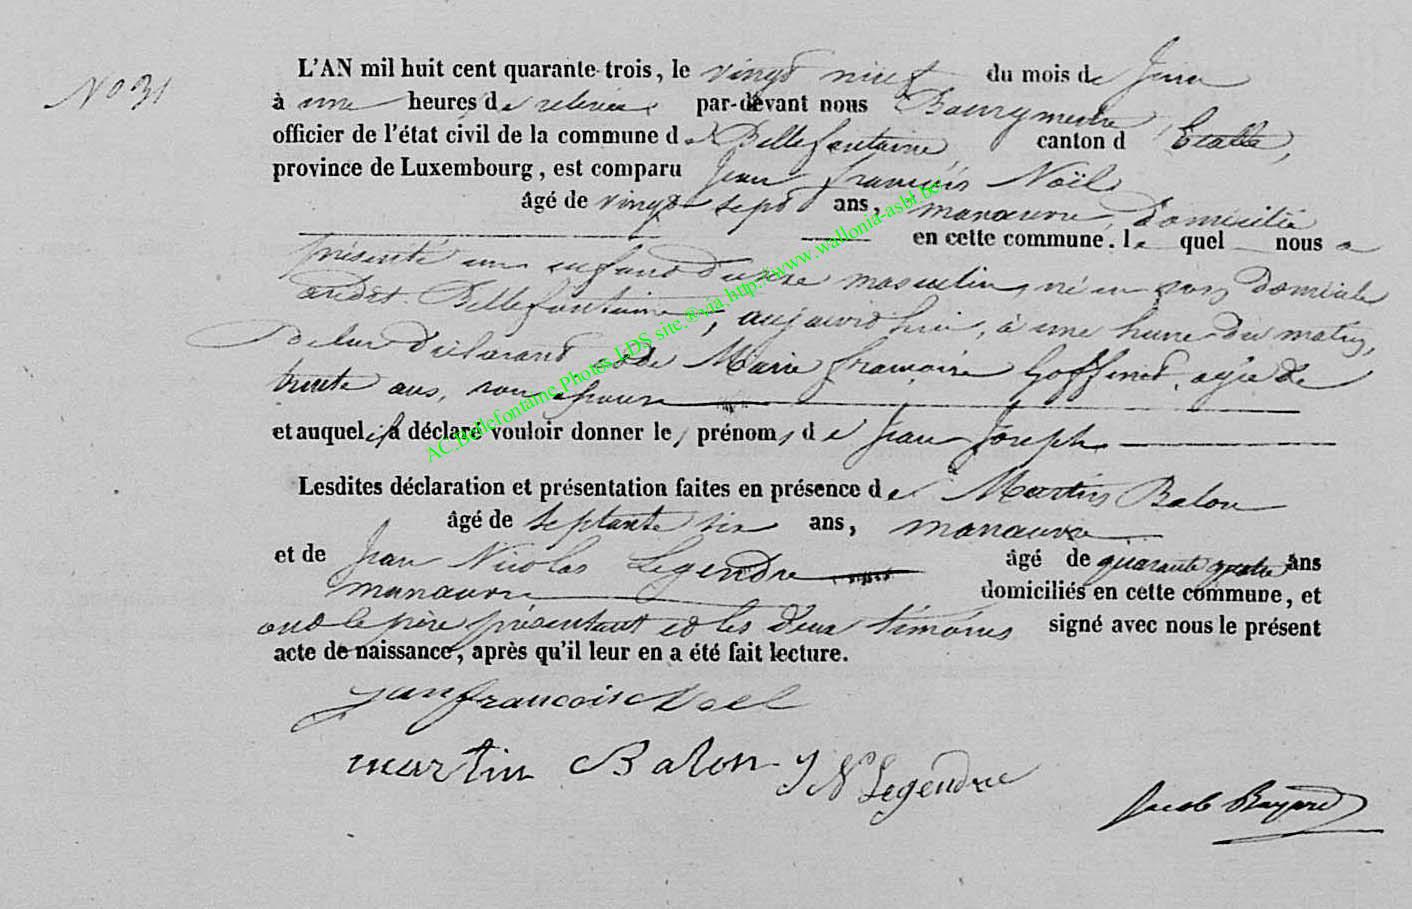 N° 31
L'AN mil huit cent quarante-trois, le vingt neuf du mois de Juin
à une heures de relevée, par-devant nous Bourgmestre
officier de l'état civil de la commune de Bellefontaine, canton d'Etalle,
province de Luxembourg, est comparu Jean françois Noël
âgé de vingt sept ans, manœuvre, domicilié
en cette commune. le quel nous a
présenté un enfant du sexe masculin, né en son domicile
audit Bellefontaine, aujourd'hui, à une heure du matin,
de lui déclarant et de Marie françoise Goffinet, agée de
trente ans, son épouse
et auquel il a déclaré vouloir donner les prénoms de Jean Joseph
Lesdites déclaration et présentation faites en présence de Martin Balon
âgé de septante six ans, manœuvre
et de Jean Nicolas Legendre âgé de quarante quatre ans
manœuvre domiciliés en cette commune, et
ont le père présentant et les deux témoins signé avec nous le présent
acte de naissance, après qu'il leur en a été fait lecture.
jean francois Noel
martin Balon JN Legendre
Jacob Bayard
AC.Bellefontaine Photos LDS site ®via http://www.wallonia-asbl.be/